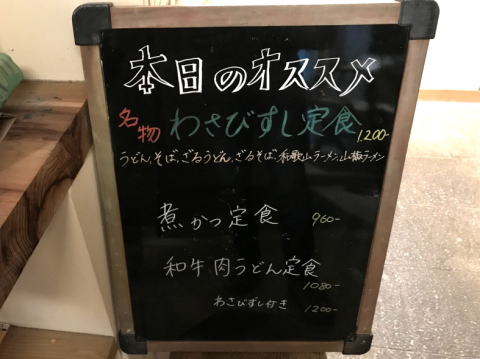 本日のオススメ
名物 わさびずし定食 1,200-
うどん、そば、ざるうどん、ざるそば、和歌山ラーメン、山椒ラーメン
煮かつ定食 960-
和牛肉うどん定食
1080-
わさびずし付き 1200-